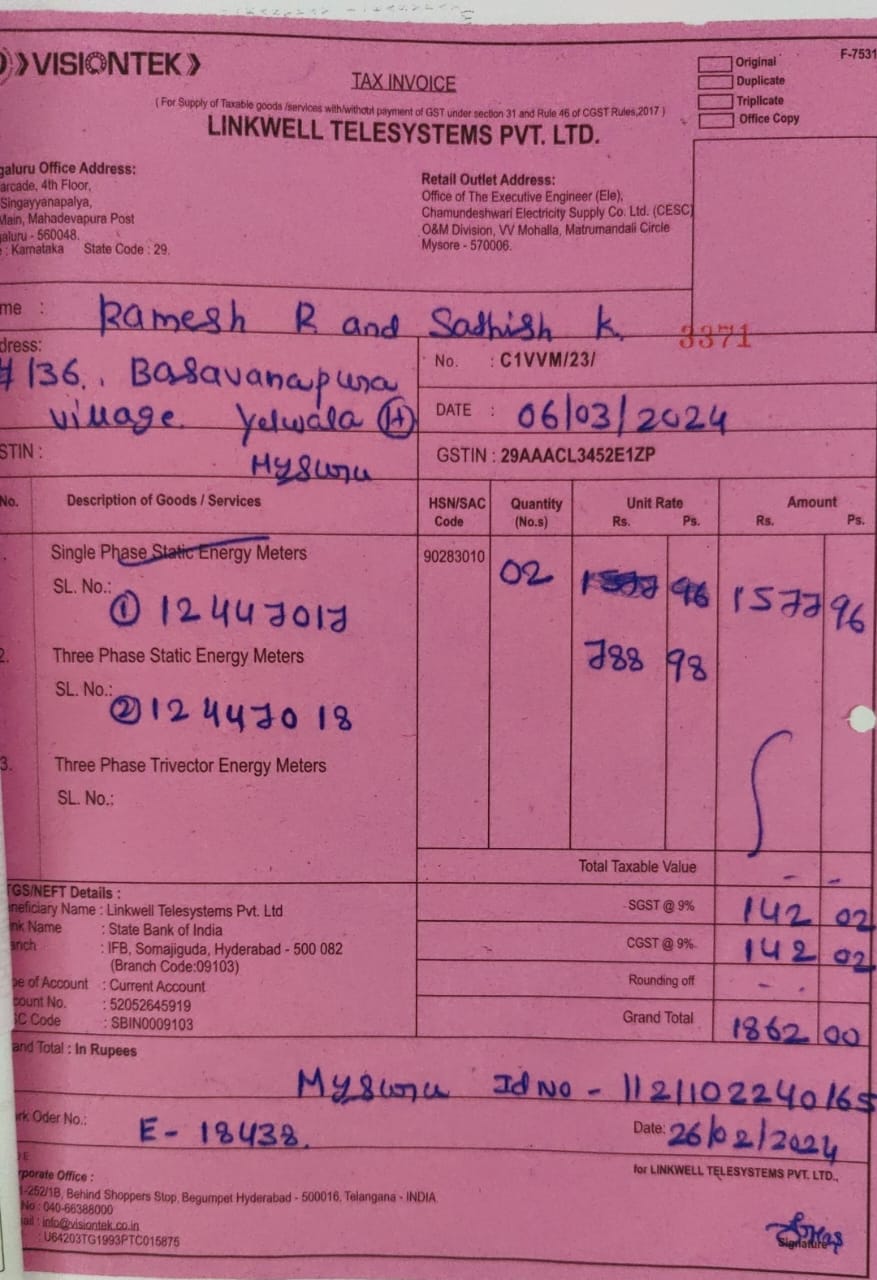 VISIONTEK
F-7531
Original
Duplicate
Triplicate
Office Copy
TAX INVOICE
( For Supply of Taxable goods /services with/without payment of GST under section 31 and Rule 46 of CGST Rules,2017 )
LINKWELL TELESYSTEMS PVT. LTD.
galuru Office Address:
arcade, 4th Floor,
Singayyanapalya,
Main, Mahadevapura Post
galuru - 560048.
: Karnataka State Code : 29.
Retail Outlet Address:
Office of The Executive Engineer (Ele),
Chamundeshwari Electricity Supply Co. Ltd. (CESC)
O&M Division, VV Mohalla, Matrumandali Circle
Mysore - 570006.
me : Ramesh R and Sathish K
3371
dress: # 136, Basavanapura
village. Yelwala (H)
Mysuru
No. : C1VVM/23/
DATE : 06/03/2024
STIN :
GSTIN : 29AAACL3452E1ZP
No. Description of Goods / Services HSN/SAC Code Quantity (No.s) Unit Rate Rs. Ps. Amount Rs. Ps.
Single Phase Static Energy Meters 90283010 02 1577 96 1577 96
SL. No.:
① 12447017
2. Three Phase Static Energy Meters 788 98
SL. No.:
② 12447018
3. Three Phase Trivector Energy Meters
SL. No.:
Total Taxable Value - -
TGS/NEFT Details :
neficiary Name : Linkwell Telesystems Pvt. Ltd
nk Name : State Bank of India
anch : IFB, Somajiguda, Hyderabad - 500 082
(Branch Code:09103)
pe of Account : Current Account
count No. : 52052645919
SC Code : SBIN0009103
SGST @ 9% 142 02
CGST @ 9% 142 02
Rounding off - .
Grand Total 1862 00
and Total : In Rupees
Mysuru Id No - 1121102240165
rk Oder No.: E - 18438.
Date: 26/02/2024
for LINKWELL TELESYSTEMS PVT. LTD.,
rporate Office :
1-252/1B, Behind Shoppers Stop, Begumpet Hyderabad - 500016, Telangana - INDIA
No : 040-66388000
ail : info@visiontek.co.in
: U64203TG1993PTC015875
Signature